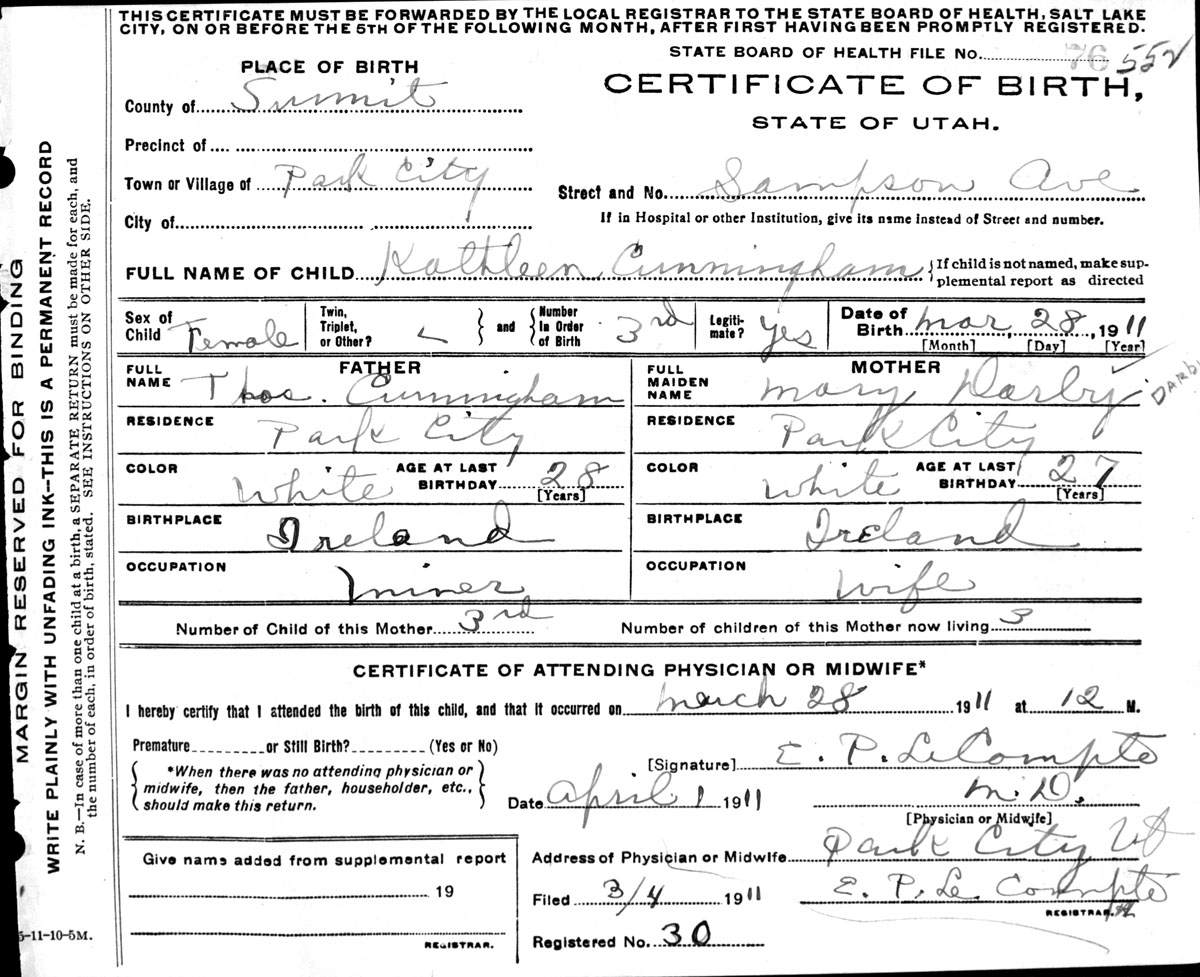 THIS CERTIFICATE MUST BE FORWARDED BY THE LOCAL REGISTRAR TO THE STATE BOARD OF HEALTH, SALT LAKE
CITY, ON OR BEFORE THE 5TH OF THE FOLLOWING MONTH, AFTER FIRST HAVING BEEN PROMPTLY REGISTERED.
STATE BOARD OF HEALTH FILE No. 76 552
PLACE OF BIRTH
CERTIFICATE OF BIRTH,
STATE OF UTAH.
County of Summit
Precinct of
Town or Village of Park City
Street and No. Sampson Ave
City of
If in Hospital or other Institution, give its name instead of Street and number.
FULL NAME OF CHILD Kathleen Cunningham
{If child is not named, make sup-
plemental report as directed
Sex of Child Female
Twin, Triplet, or Other?
and
Number In Order of Birth 3rd
Legiti-mate? Yes
Date of Birth Mar 28, 1911
[Month] [Day] [Year]
FATHER
FULL NAME Thos. Cunningham
RESIDENCE Park City
COLOR White
AGE AT LAST BIRTHDAY 28
[Years]
BIRTHPLACE Ireland
OCCUPATION Miner
MOTHER
FULL MAIDEN NAME Mary Darby
DARBY
RESIDENCE Park City
COLOR White
AGE AT LAST BIRTHDAY 27
[Years]
BIRTHPLACE Ireland
OCCUPATION Wife
Number of Child of this Mother 3rd
Number of children of this Mother now living 3
CERTIFICATE OF ATTENDING PHYSICIAN OR MIDWIFE*
I hereby certify that I attended the birth of this child, and that it occurred on March 28 1911 at 12 M.
Premature or Still Birth? (Yes or No)
*When there was no attending physician or
midwife, then the father, householder, etc.,
should make this return.
[Signature] E. P. LeCompte
Date April 1 1911
M. D.
[Physician or Midwife]
Give name added from supplemental report
19
REGISTRAR.
Address of Physician or Midwife Park City Ut
Filed 3/4 1911
E. P. Le Compte
REGISTRAR.
Registered No. 30
5-11-10-5M.
MARGIN RESERVED FOR BINDING
WRITE PLAINLY WITH UNFADING INK—THIS IS A PERMANENT RECORD
N. B.—In case of more than one child at a birth, a SEPARATE RETURN must be made for each, and
the number of each, in order of birth, stated. SEE INSTRUCTIONS ON OTHER SIDE.